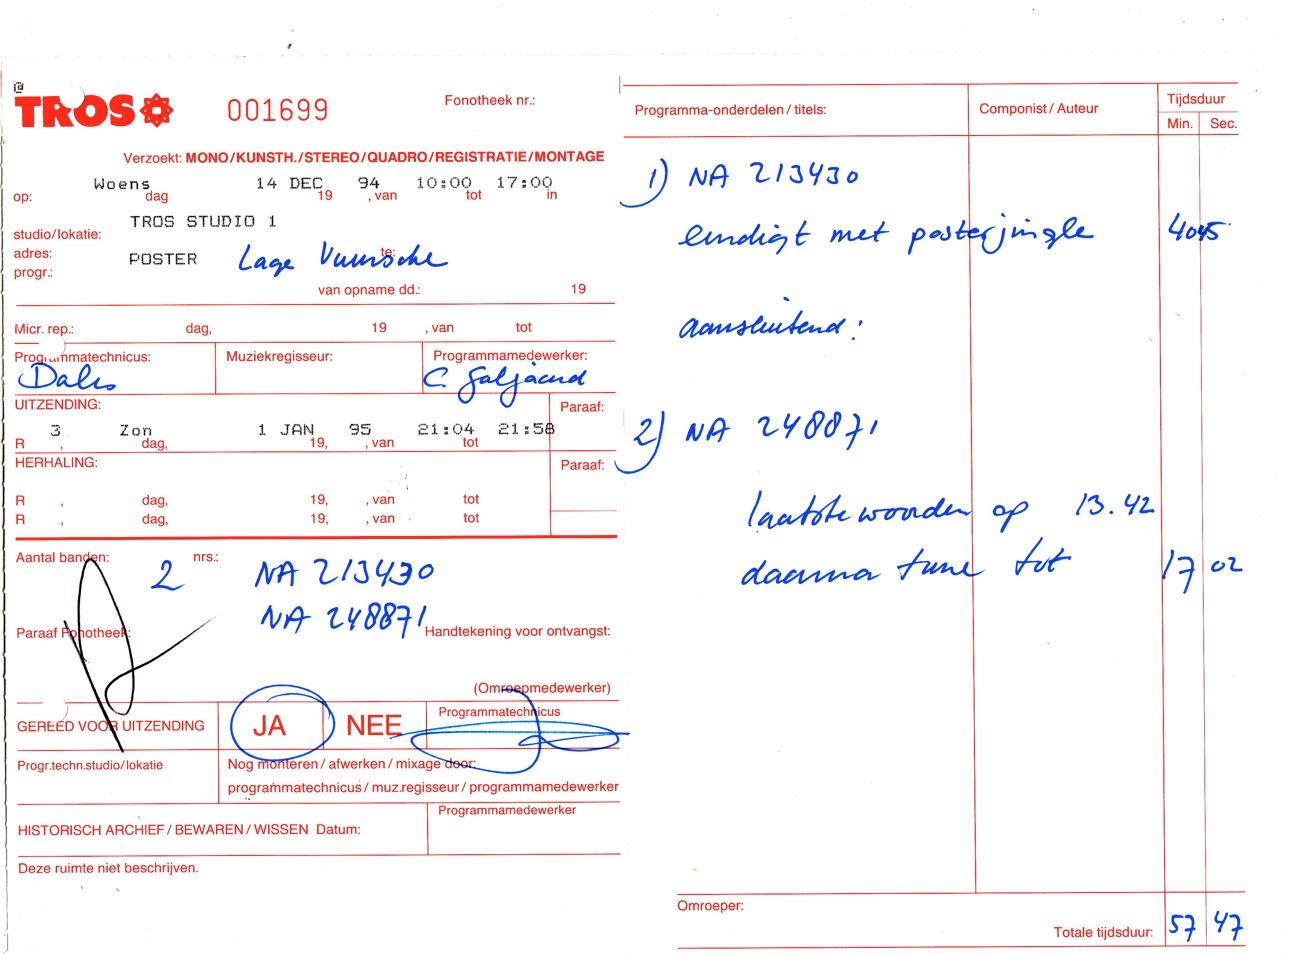 TROS
001699
Fonotheek nr.:
Verzoekt: MONO/KUNSTH./STEREO/QUADRO/REGISTRATIE/MONTAGE
Woens 14 DEC 94 10:00 17:00
op: dag 19 , van tot in
TROS STUDIO 1
studio/lokatie:
adres: te:
POSTER Lage Vuursche
progr.:
van opname dd.: 19
Micr. rep.: dag, 19 , van tot
Programmatechnicus: Muziekregisseur: Programmamedewerker:
C. Galjaard
UITZENDING: Paraaf:
3 Zon 1 JAN 95 21:04 21:58
R , dag, 19, , van tot
HERHALING: Paraaf:
R , dag, 19, , van tot
R , dag, 19, , van tot
Aantal banden: 2 nrs.: NA 213430
NA 248871
Paraaf Fonotheek: Handtekening voor ontvangst:
(Omroepmedewerker)
GEREED VOOR UITZENDING JA NEE Programmatechnicus
Progr.techn.studio/lokatie Nog monteren / afwerken / mixage door:
programmatechnicus / muz.regisseur / programmamedewerker
Programmamedewerker
HISTORISCH ARCHIEF / BEWAREN / WISSEN Datum:
Deze ruimte niet beschrijven.
Programma-onderdelen / titels: Componist / Auteur Tijdsduur
Min. Sec.
1) NA 213430
eindigt met posterjingle 4045
aansluitend:
2) NA 248871
laatste woorden op 13.42
daarna tune tot 17 02
Omroeper:
Totale tijdsduur: 57 47